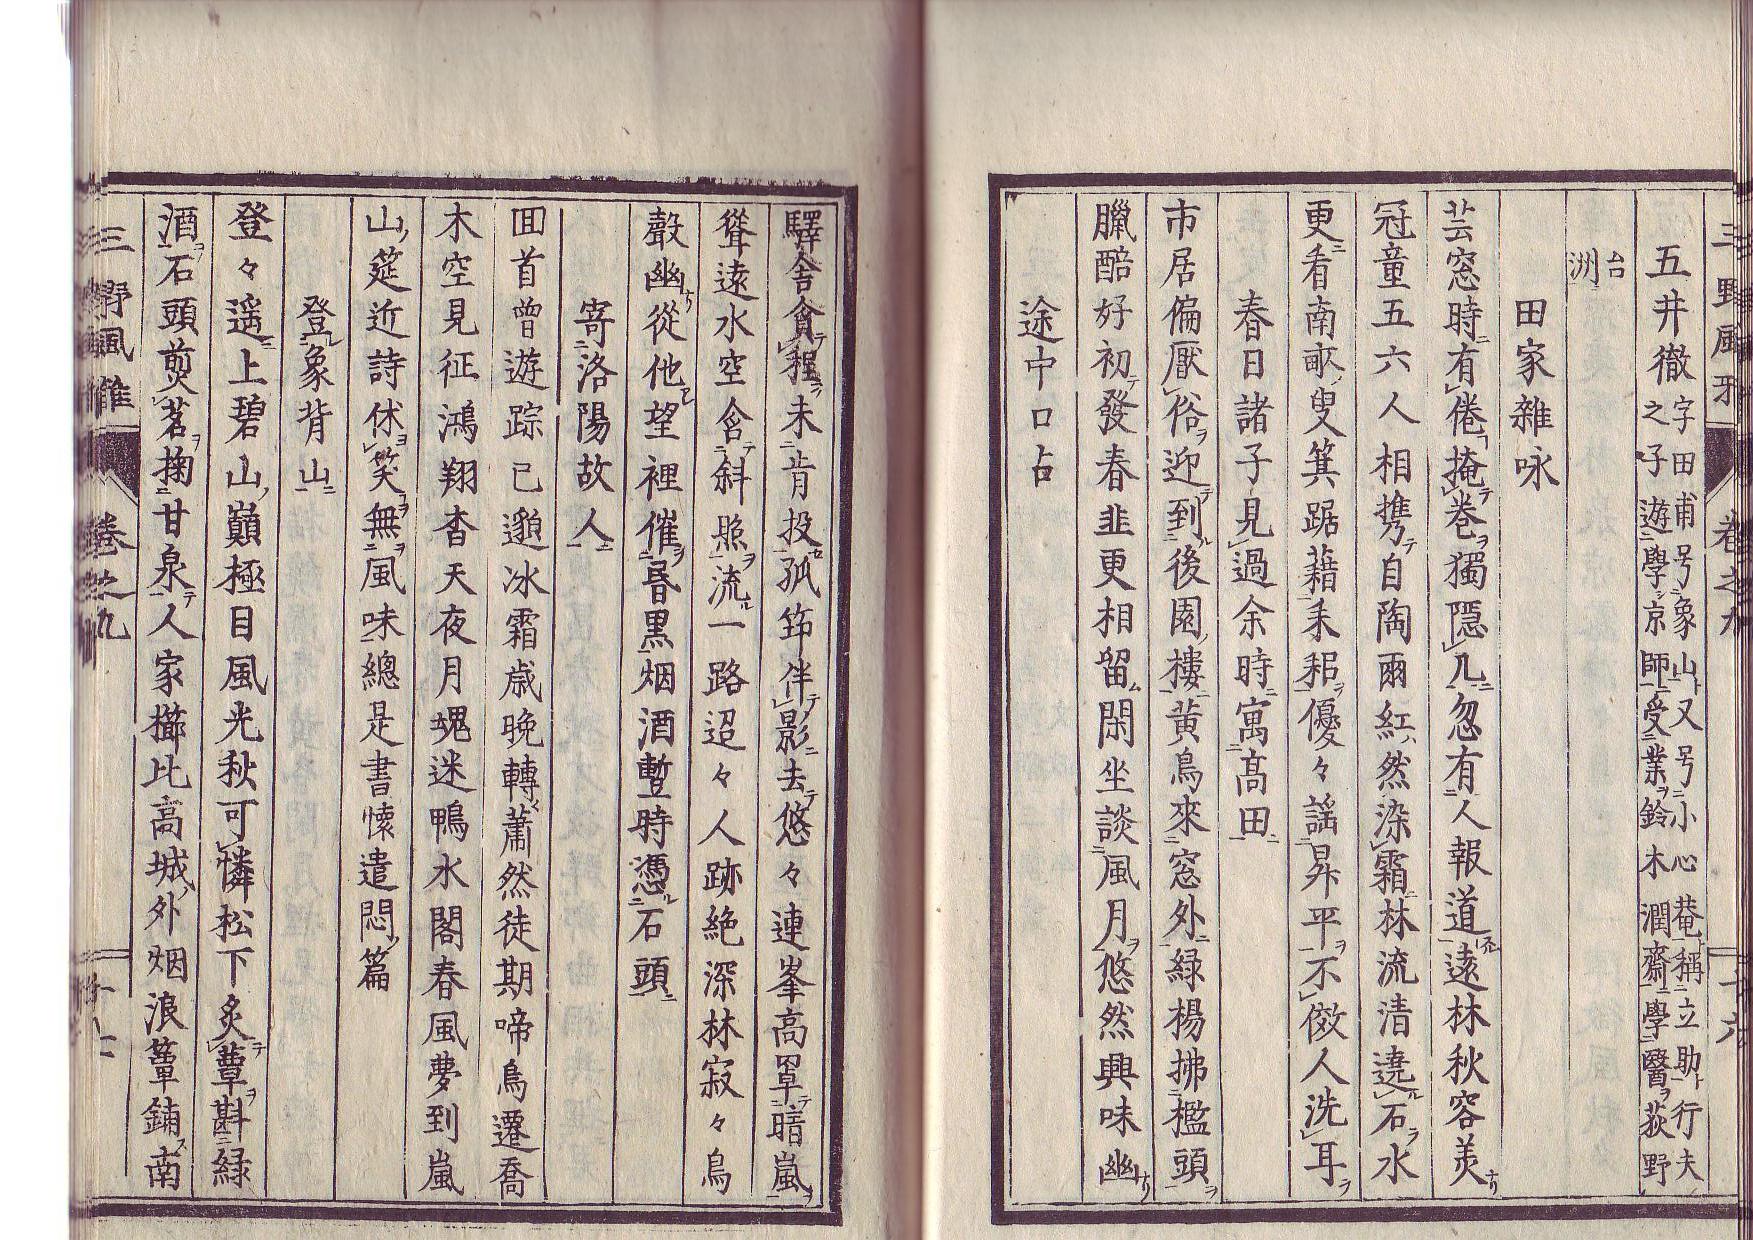 三野風雅 卷之九 十六
五井徹 字田甫号象山又号小心菴稱立助行夫
之子遊學京師受業鈴木潤齋學醫荻野
台洲
田家雜咏
芸窓時有倦掩卷獨隠几忽有人報道遠林秋容美
冠童五六人相携自陶爾紅然染霜林流清遶石水
更看南畝叟箕踞藉耒耜優々謡昇平不傚人洗耳
春日諸子見過余時寓高田
市居偏厭俗迎到後園樓黄鳥來窓外緑楊拂檻頭
臘醅好初發春韭更相留閑坐談風月悠然興味幽
途中口占
驛舎貪程未肯投孤筇伴影去悠々連峯高罩暗嵐
聳遠水空含斜照流一路迢々人跡絶深林寂々鳥
聲幽從他望裡催昬黒烟酒暫時憑石頭
寄洛陽故人
囬首曽遊踪已邈冰霜歳晩轉蕭然徒期啼鳥遷喬
木空見征鴻翔杳天夜月魂迷鴨水閣春風夢到嵐
山筵近詩休笑無風味總是書懷遣悶篇
登象背山
登々遥上碧山巓極目風光秋可憐松下炙蕈斟緑
酒石頭煎茗掬甘泉人家櫛比高城外烟浪簟鋪南
三野風雅 卷之九 十七